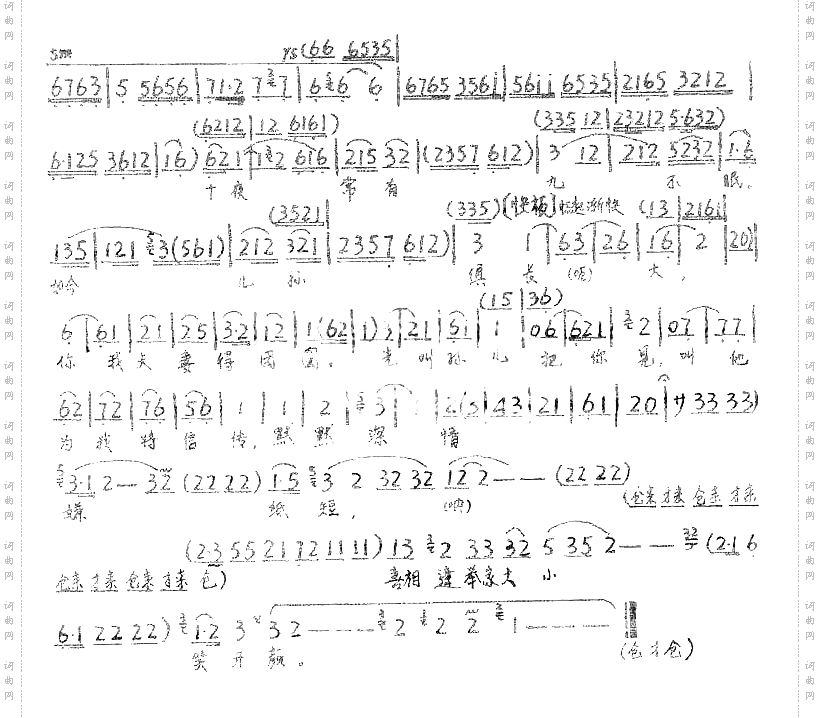 (66 6535
6763 | 5 5656 | 71·2 7 7 | 6 6 6 | 6765 3561 | 5611 6535 | 2165 3212 |
(6212 | 12 6161) (335 12 | 23212 5·632)
6·125 3612 | 16) 621 | 1 2 616 | 215 32 | (2357 612) | 3 12 | 212 5232 | 1·6
十 夜 常 有 九 不 眠。
(3521 (335) [快板] 渐快 (13 | 2161
135 | 121 3 (561) | 212 321 | 2357 612) | 3 1 | 63 26 | 16 2 | 20)
如今 儿 孙 俱 长 (呃) 大,
(15 | 36)
6 | 61 | 21 | 25 | 3·2 | 12 | 1 (62 | 1) 2 | 21 | 61 | 1 | 06 | 621 | 2 | 07 | 77 |
你 我 夫 妻 得 团 圆。 先 叫 孙 儿 把 你 见, 叫 他
62 | 72 | 76 | 56 | 1 | 1 | 2 | 3 | 2 (5 | 43 | 21 | 61 | 20 | サ 33 33)
为 我 将 信 传, 默 默 深 情
3·1 2 — 32 (22 22) 1·5 3 2 32 32 12 2 — — (22 22)
嫌 纸 短, (呐)
(仓来 才来 仓来 才来
(2·3 55 21 72 11 11) 13 2 33 32 5 35 2 — — (2·1 6
仓来 才来 仓来 才来 仓) 喜相逢举家大小
6·1 22 22) 1·2 3 3 2 — — — 2 2 2 1 — — — —
笑 开 颜。 (仓 才 仓)
词曲网